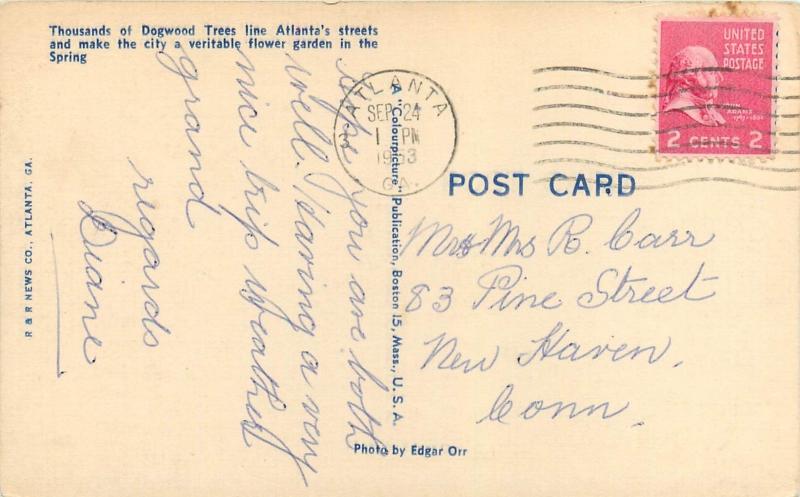 Thousands of Dogwood Trees line Atlanta's streets
and make the city a veritable flower garden in the
Spring
ATLANTA
SEP 24
1 PM
1953
GA.
UNITED
STATES
POSTAGE
JOHN
ADAMS
1797-1801
2 CENTS 2
POST CARD
Hope you are both
well. Having a very
nice trip Weather
grand
regards
Diane
A "Colourpicture" Publication, Boston 15, Mass., U. S. A.
R & R NEWS CO., ATLANTA, GA.
Mr & Mrs R. Carr
83 Pine Street
New Haven,
Conn.
Photo by Edgar Orr